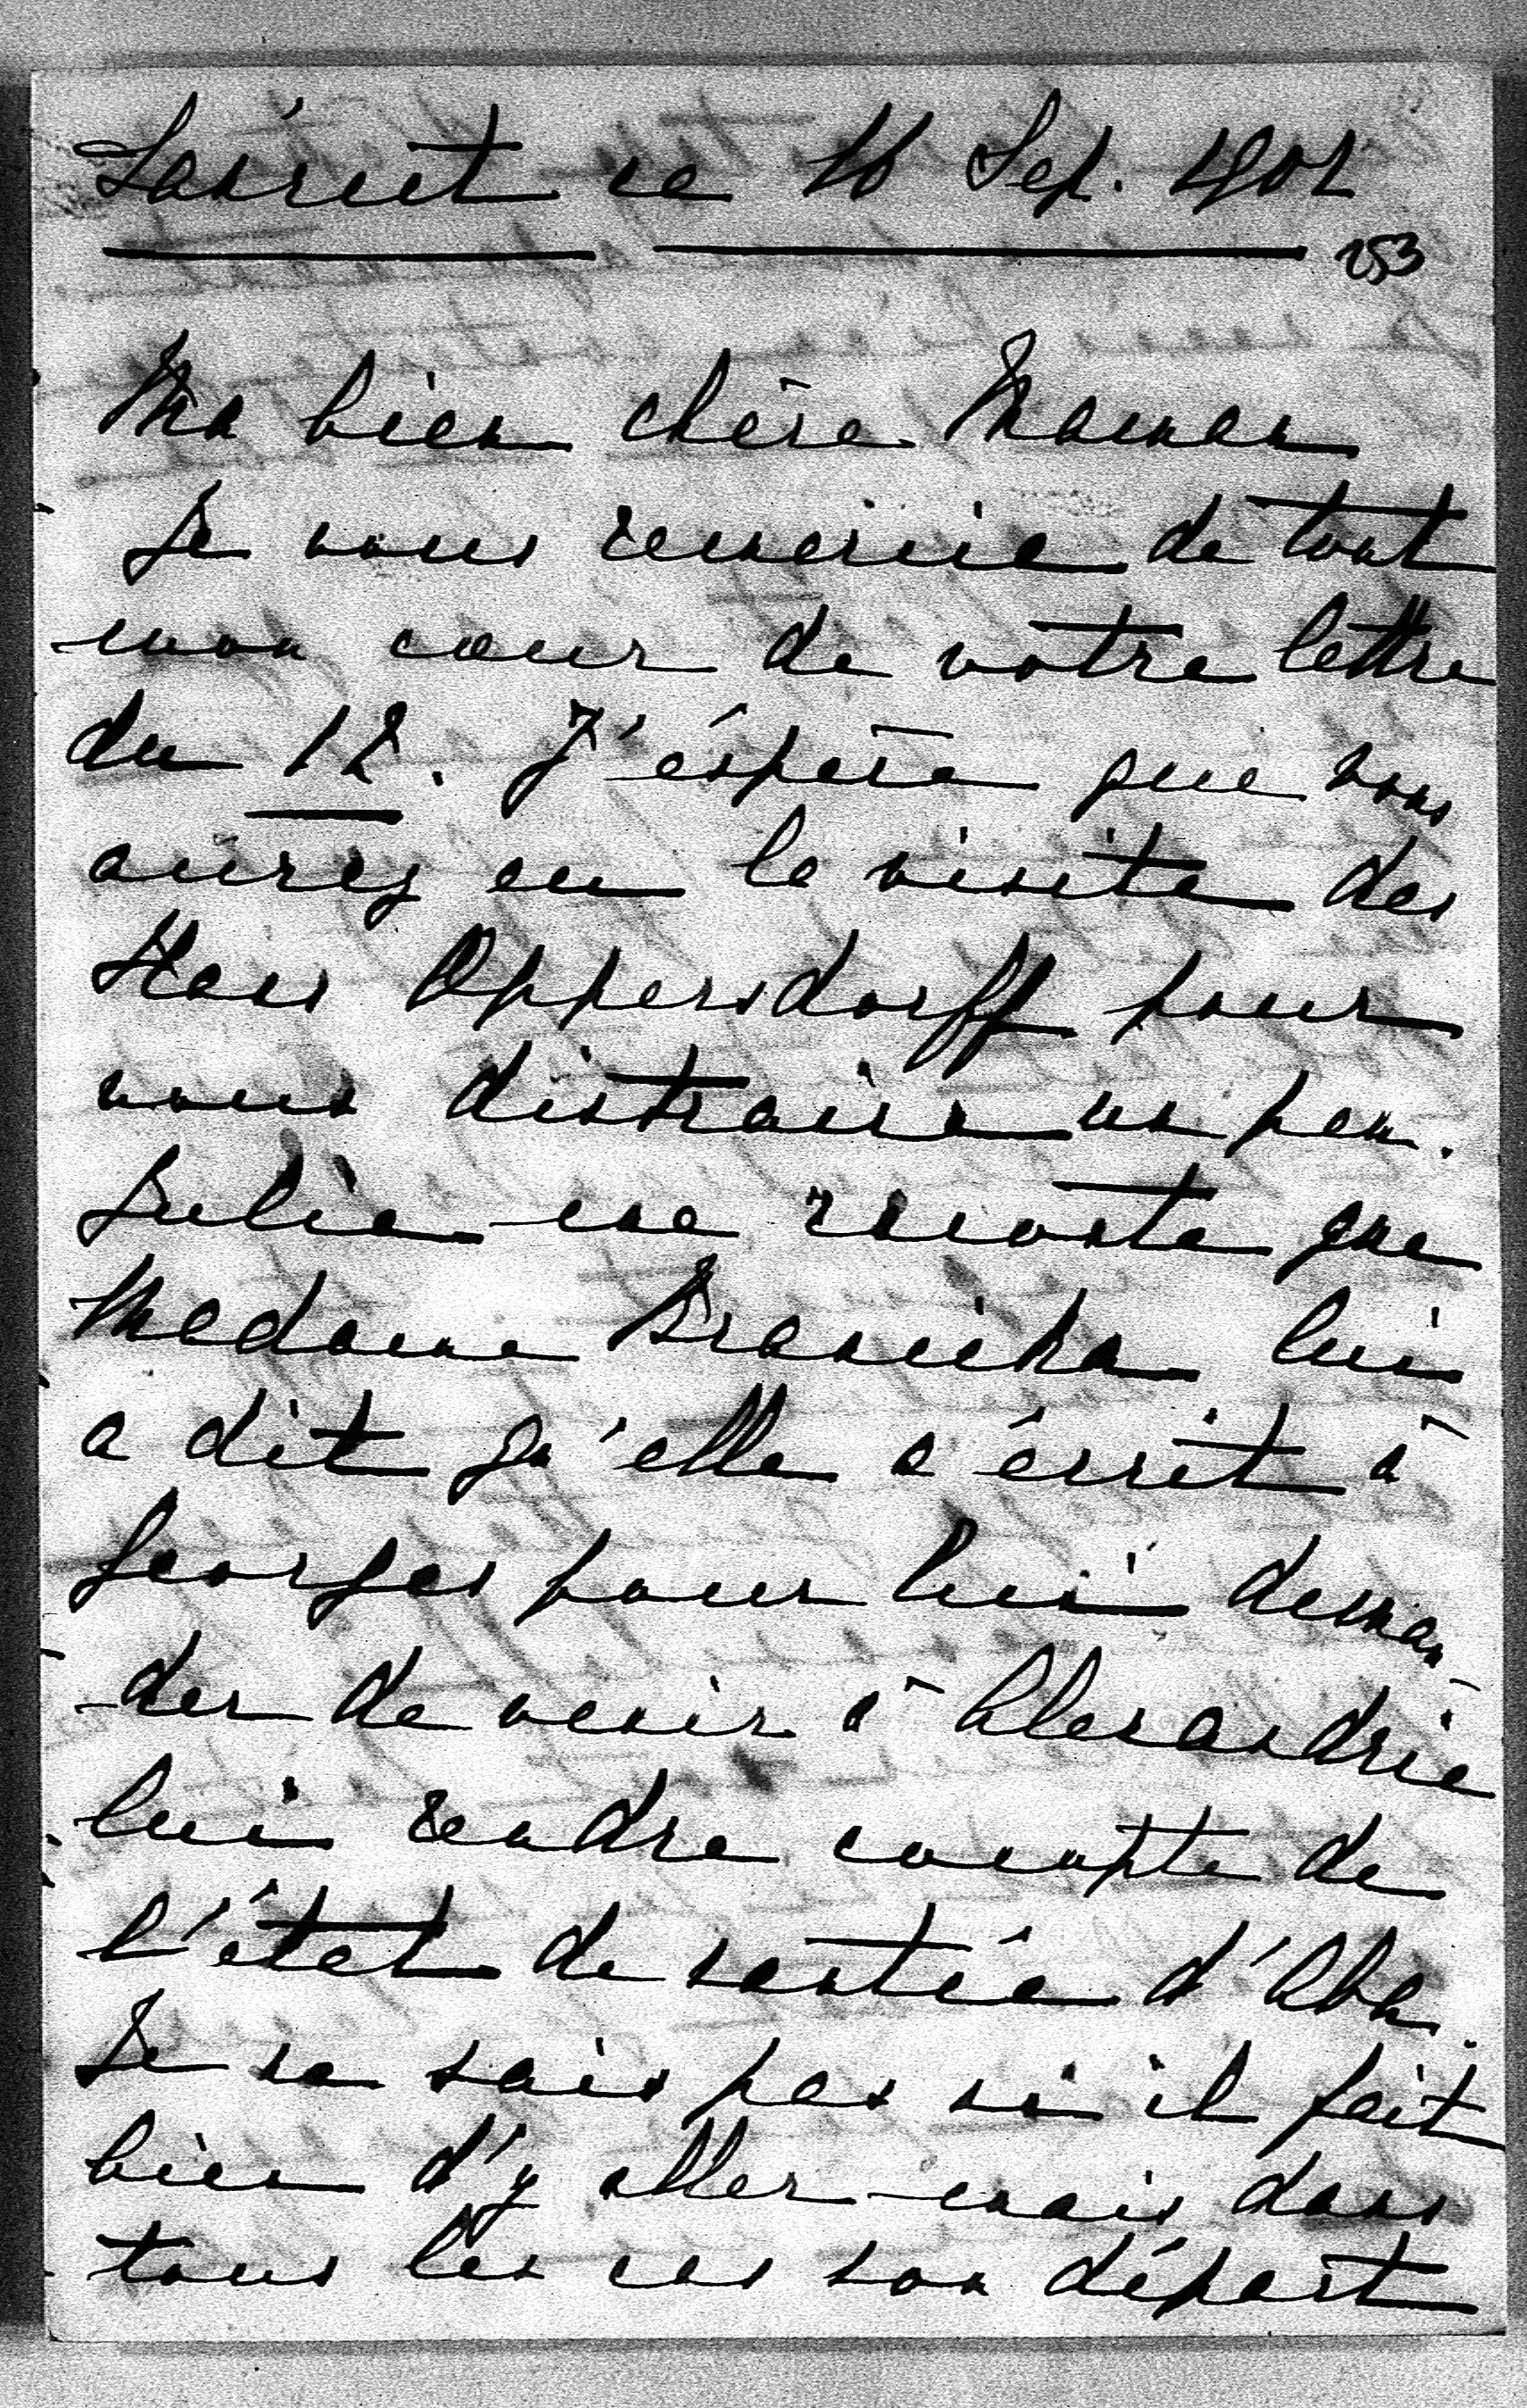 Łańcut ce 16 Sep. 1902
253
Ma bien chère Maman
Je vous remercie de tout
mon cœur de votre lettre
du 12. J'éspère que vous
aurez eu la visite des
Hans Oppersdorff pour
vous distraire un peu.
Julie me raconte que
Madame Branicka lui
a dit qu'elle a écrit à
Georges pour lui deman-
der de venir à Alexandrie
lui rendre compte de
l'état de santée d'Aba.
Je ne sais pas si il fait
bien d'y aller mais dans
tous les cas son départ